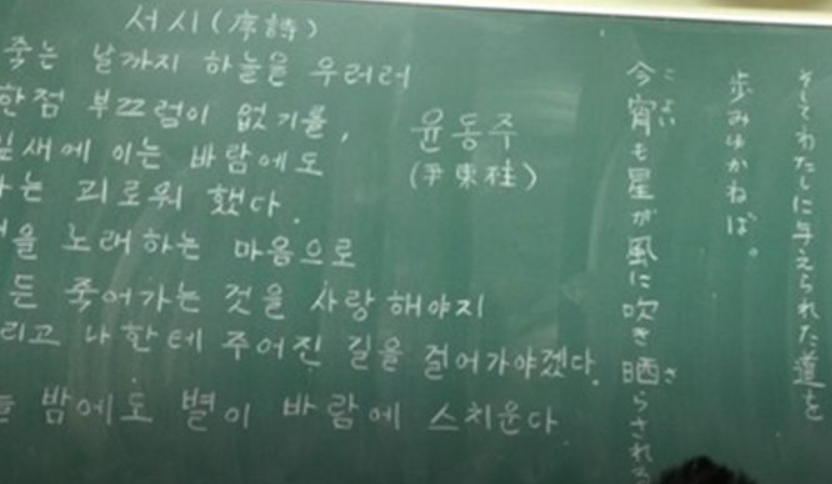 서시(序詩)
죽는 날까지 하늘을 우러러
한점 부끄럼이 없기를,
잎새에 이는 바람에도
는 괴로워 했다.
을 노래하는 마음으로
든 죽어가는 것을 사랑해야지
리고 나한테 주어진 길을 걸어가야겠다.
밤에도 별이 바람에 스치운다
윤동주
(尹東柱)
そしてわたしに与えられた道を
歩みゆかねば。
今宵も星が風に吹き晒らされる
こよい
さ